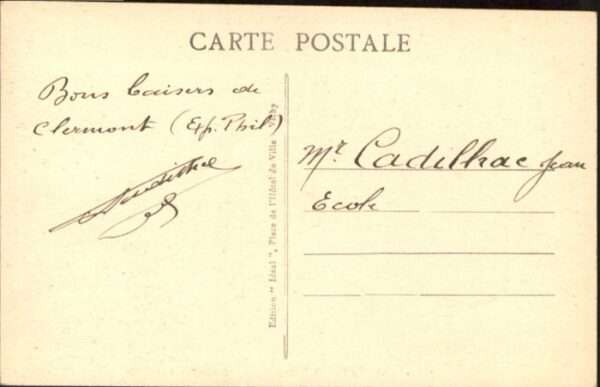 CARTE POSTALE
Bons baisers de
Clermont (Exp. Phil)
Edition " Idéal ", Place de l'Hôtel de Ville Vichy
Mr. Cadilhac Jean
Ecole